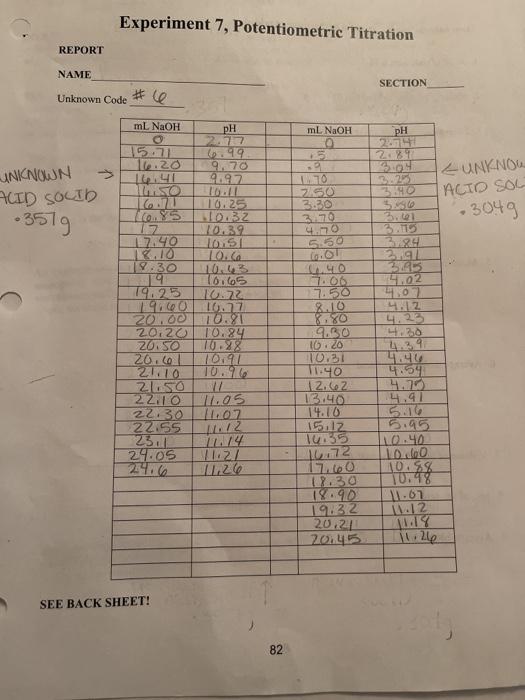 Experiment 7, Potentiometric Titration
REPORT
NAME
SECTION
Unknown Code # 6
mL NaOH pH mL NaOH pH
0 2.77 0 2.74
15.71 6.99 .5 2.89
16.20 9.70 .9 3.04
16.41 9.97 1.70 3.25
16.50 10.11 2.50 3.40
16.71 10.25 3.30 3.56
16.85 10.32 3.70 3.61
17 10.39 4.70 3.75
17.40 10.51 5.50 3.84
18.10 10.6 6.01 3.91
18.30 10.63 6.40 3.95
19 10.65 7.00 4.02
19.25 10.72 7.50 4.07
19.60 10.77 8.10 4.12
20.00 10.81 8.80 4.23
20.20 10.84 9.30 4.30
20.50 10.88 10.20 4.39
20.61 10.91 10.31 4.46
21.10 10.96 11.40 4.54
21.50 11 12.62 4.75
22.10 11.05 13.40 4.91
22.30 11.07 14.10 5.16
22.55 11.12 15.12 5.95
23.1 11.14 16.35 10.40
24.05 11.21 16.72 10.60
24.6 11.26 17.60 10.88
18.30 10.98
18.90 11.07
19.32 11.12
20.21 11.18
20.45 11.26
UNKNOWN →
ACID SOLID
.3579
← UNKNOW
ACID SOL
.3049
SEE BACK SHEET!
82